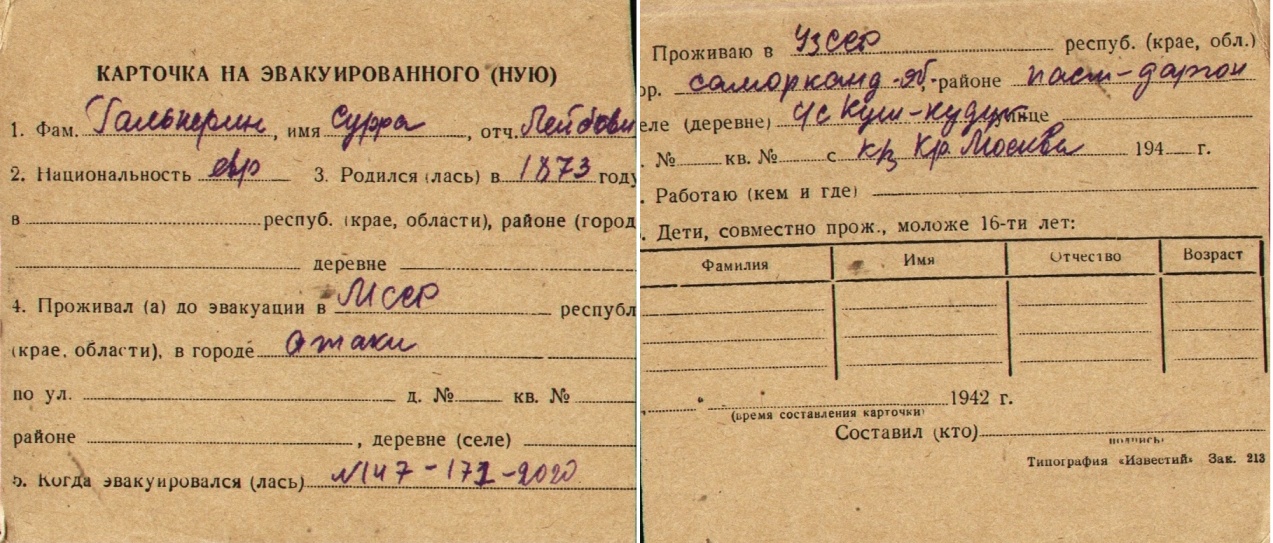 КАРТОЧКА НА ЭВАКУИРОВАННОГО (НУЮ)
1. Фам. Гальперин, имя Сурра, отч. Лейбови
2. Национальность евр 3. Родился (лась) в 1873 году
в респуб. (крае, области), районе (город
деревне
4. Проживал (а) до эвакуации в МССР республ
(крае, области), в городе Атаки
по ул. д. № кв. №
районе , деревне (селе)
5. Когда эвакуировался (лась) N147-172-2020
Проживаю в УзССР респуб. (крае, обл.)
ор. саморканд-об, районе паст-даргом
еле (деревне) с/с Куш-кудук улице
. № кв. № с к/з Кр. Москва 194 г.
. Работаю (кем и где)
. Дети, совместно прож., моложе 16-ти лет:
Фамилия Имя Отчество Возраст
1942 г.
(время составления карточки)
Составил (кто)
подпись
Типография «Известий» Зак. 213